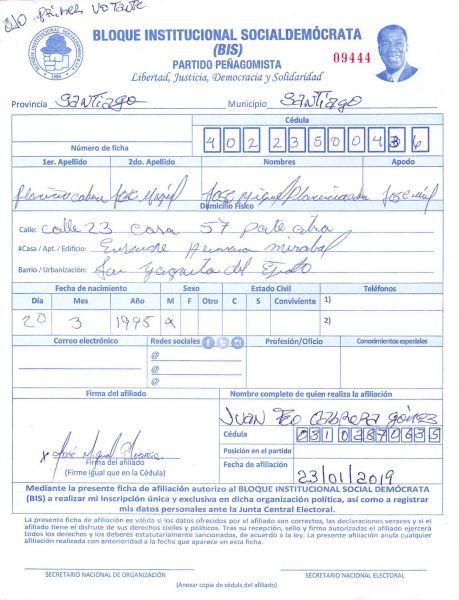 BLOQUE INSTITUCIONAL SOCIALDEMÓCRATA
(BIS)
PARTIDO PEÑAGOMISTA
Libertad, Justicia, Democracia y Solidaridad
09444
Provincia Santiago Municipio Santiago
Cédula
Número de ficha
1er. Apellido 2do. Apellido Nombres Apodo
José Miguel
Domicilio Físico
Calle: Calle 23 Casa 57 parte atra
#Casa / Apt. / Edificio: Hermana mirabal
Barrio / Urbanización: San del
Fecha de nacimiento Sexo Estado Civil Teléfonos
Día Mes Año M F Otro C S Conviviente 1)
20 3 1995 x 2)
Correo electrónico Redes sociales Profesión/Oficio Conocimientos especiales
@
@
@
Firma del afiliado Nombre completo de quien realiza la afiliación
Juan Teo Cabrera Gómez
Cédula
Posición en el partido
Fecha de afiliación 23/01/2019
x José Miguel
Firma del afiliado
(Firme igual que en la Cédula)
Mediante la presente ficha de afiliación autorizo al BLOQUE INSTITUCIONAL SOCIAL DEMÓCRATA
(BIS) a realizar mi inscripción única y exclusiva en dicha organización política, así como a registrar
mis datos personales ante la Junta Central Electoral.
La presente ficha de afiliación es válida si los datos ofrecidos por el afiliado son correctos, las declaraciones veraces y si el
afiliado tiene el disfrute de sus derechos civiles y políticos. Tras su recepción, sello y firma autorizadas el afiliado ejercerá
todos los derechos y los deberes estatutariamente sancionados, de acuerdo a la ley. La presente afiliación anula cualquier
afiliación realizada con anterioridad a la fecha que aparece en esta ficha.
SECRETARIO NACIONAL DE ORGANIZACIÓN SECRETARIO NACIONAL ELECTORAL
(Anexar copia de cédula del afiliado)